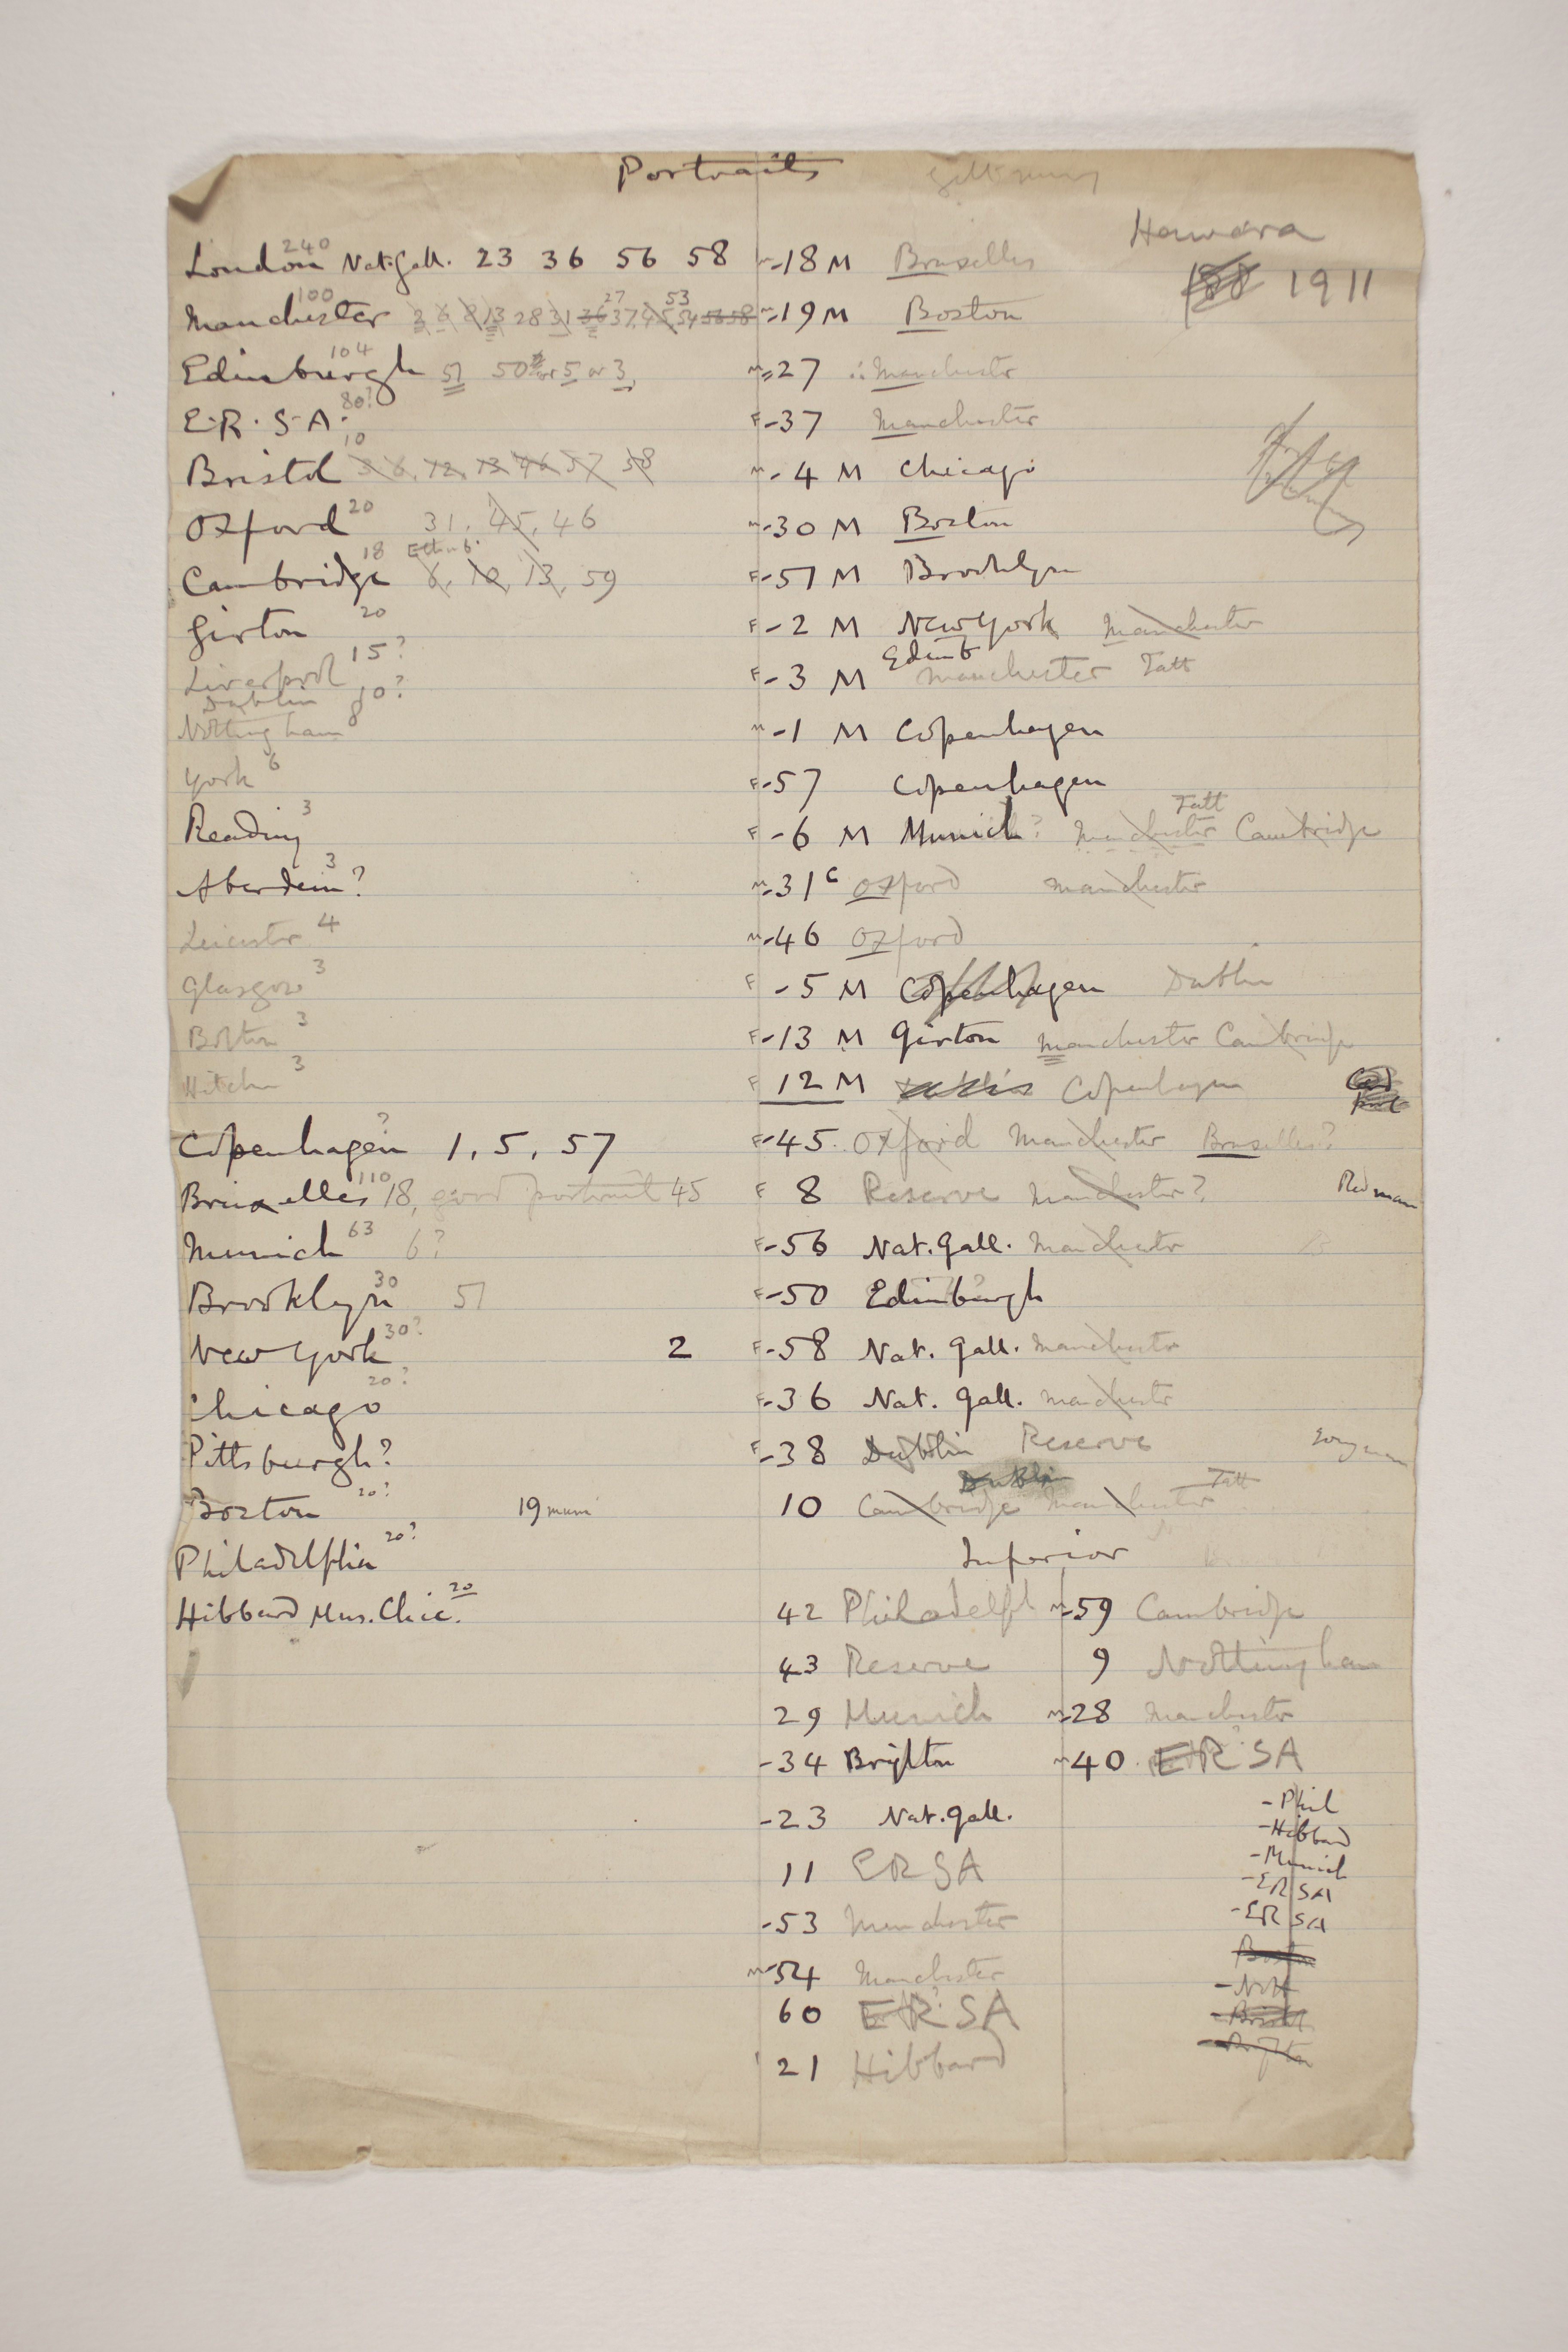 Portraits
Hawara
1911
London 240 Nat. Gall. 23 36 56 58
Manchester 100 3 6 8 13 28 31 36 27 37, 45 53 54 56 58
Edinburgh 104 51 50 or 5 or 3,
E.R.S.A. 80?
Bristol 10 3 6, 12, 13 46 57 58
Oxford 20 31, 45, 46
Cambridge 18 6, 10, 13, 59
Girton 20
Liverpool 15?
Dublin 10?
Nottingham 8
York 6
Reading 3
Aberdein? 3
Leicester 4
Glasgow 3
Bolton 3
Hitchin 3
Copenhagen ? 1, 5, 57
Bruxelles 110 18, good portrait 45
Munich 63 6?
Brooklyn 30 51
New York 30? 2
Chicago 20?
Pittsburgh?
Boston 20? 19 mum
Philadelphia 20?
Hibbard Mus. Chic. 20
M -18 M Bruselles
M -19 M Boston
M -27 ∴ Manchester
F -37 Manchester
M -4 M Chicago
M -30 M Boston
F -51 M Brooklyn
F -2 M New York Manchester
F -3 M Edinb Manchester Tatt
M -1 M Copenhagen
F -57 Copenhagen
F -6 M Munich? Manchester Tatt Cambridge
M -31 c Oxford Manchester
M -46 Oxford
F -5 M Copenhagen Dublin
F -13 M Girton Manchester Cambridge
F 12 M Copenhagen
F -45 Oxford Manchester Bruselles?
F 8 Reserve Manchester? Redman
F -56 Nat. Gall. Manchester
F -50 Edinburgh
F -58 Nat. Gall. Manchester
F -36 Nat. Gall. Manchester
F -38 Dublin Reserve
Dublin
10 Cambridge Manchester Tatt
Inferior
42 Philadelph M -59 Cambridge
43 Reserve 9 Nottingham
29 Munich M -28 Manchester
-34 Brighton M -40 ERSA
-23 Nat. Gall.
11 ERSA
-53 Manchester
M -54 Manchester
60 ERSA
21 Hibbard
- Phil
- Hibbard
- Munich
- ERSA
- ERSA
Boston
- Nott
- Bristol
- Brighton